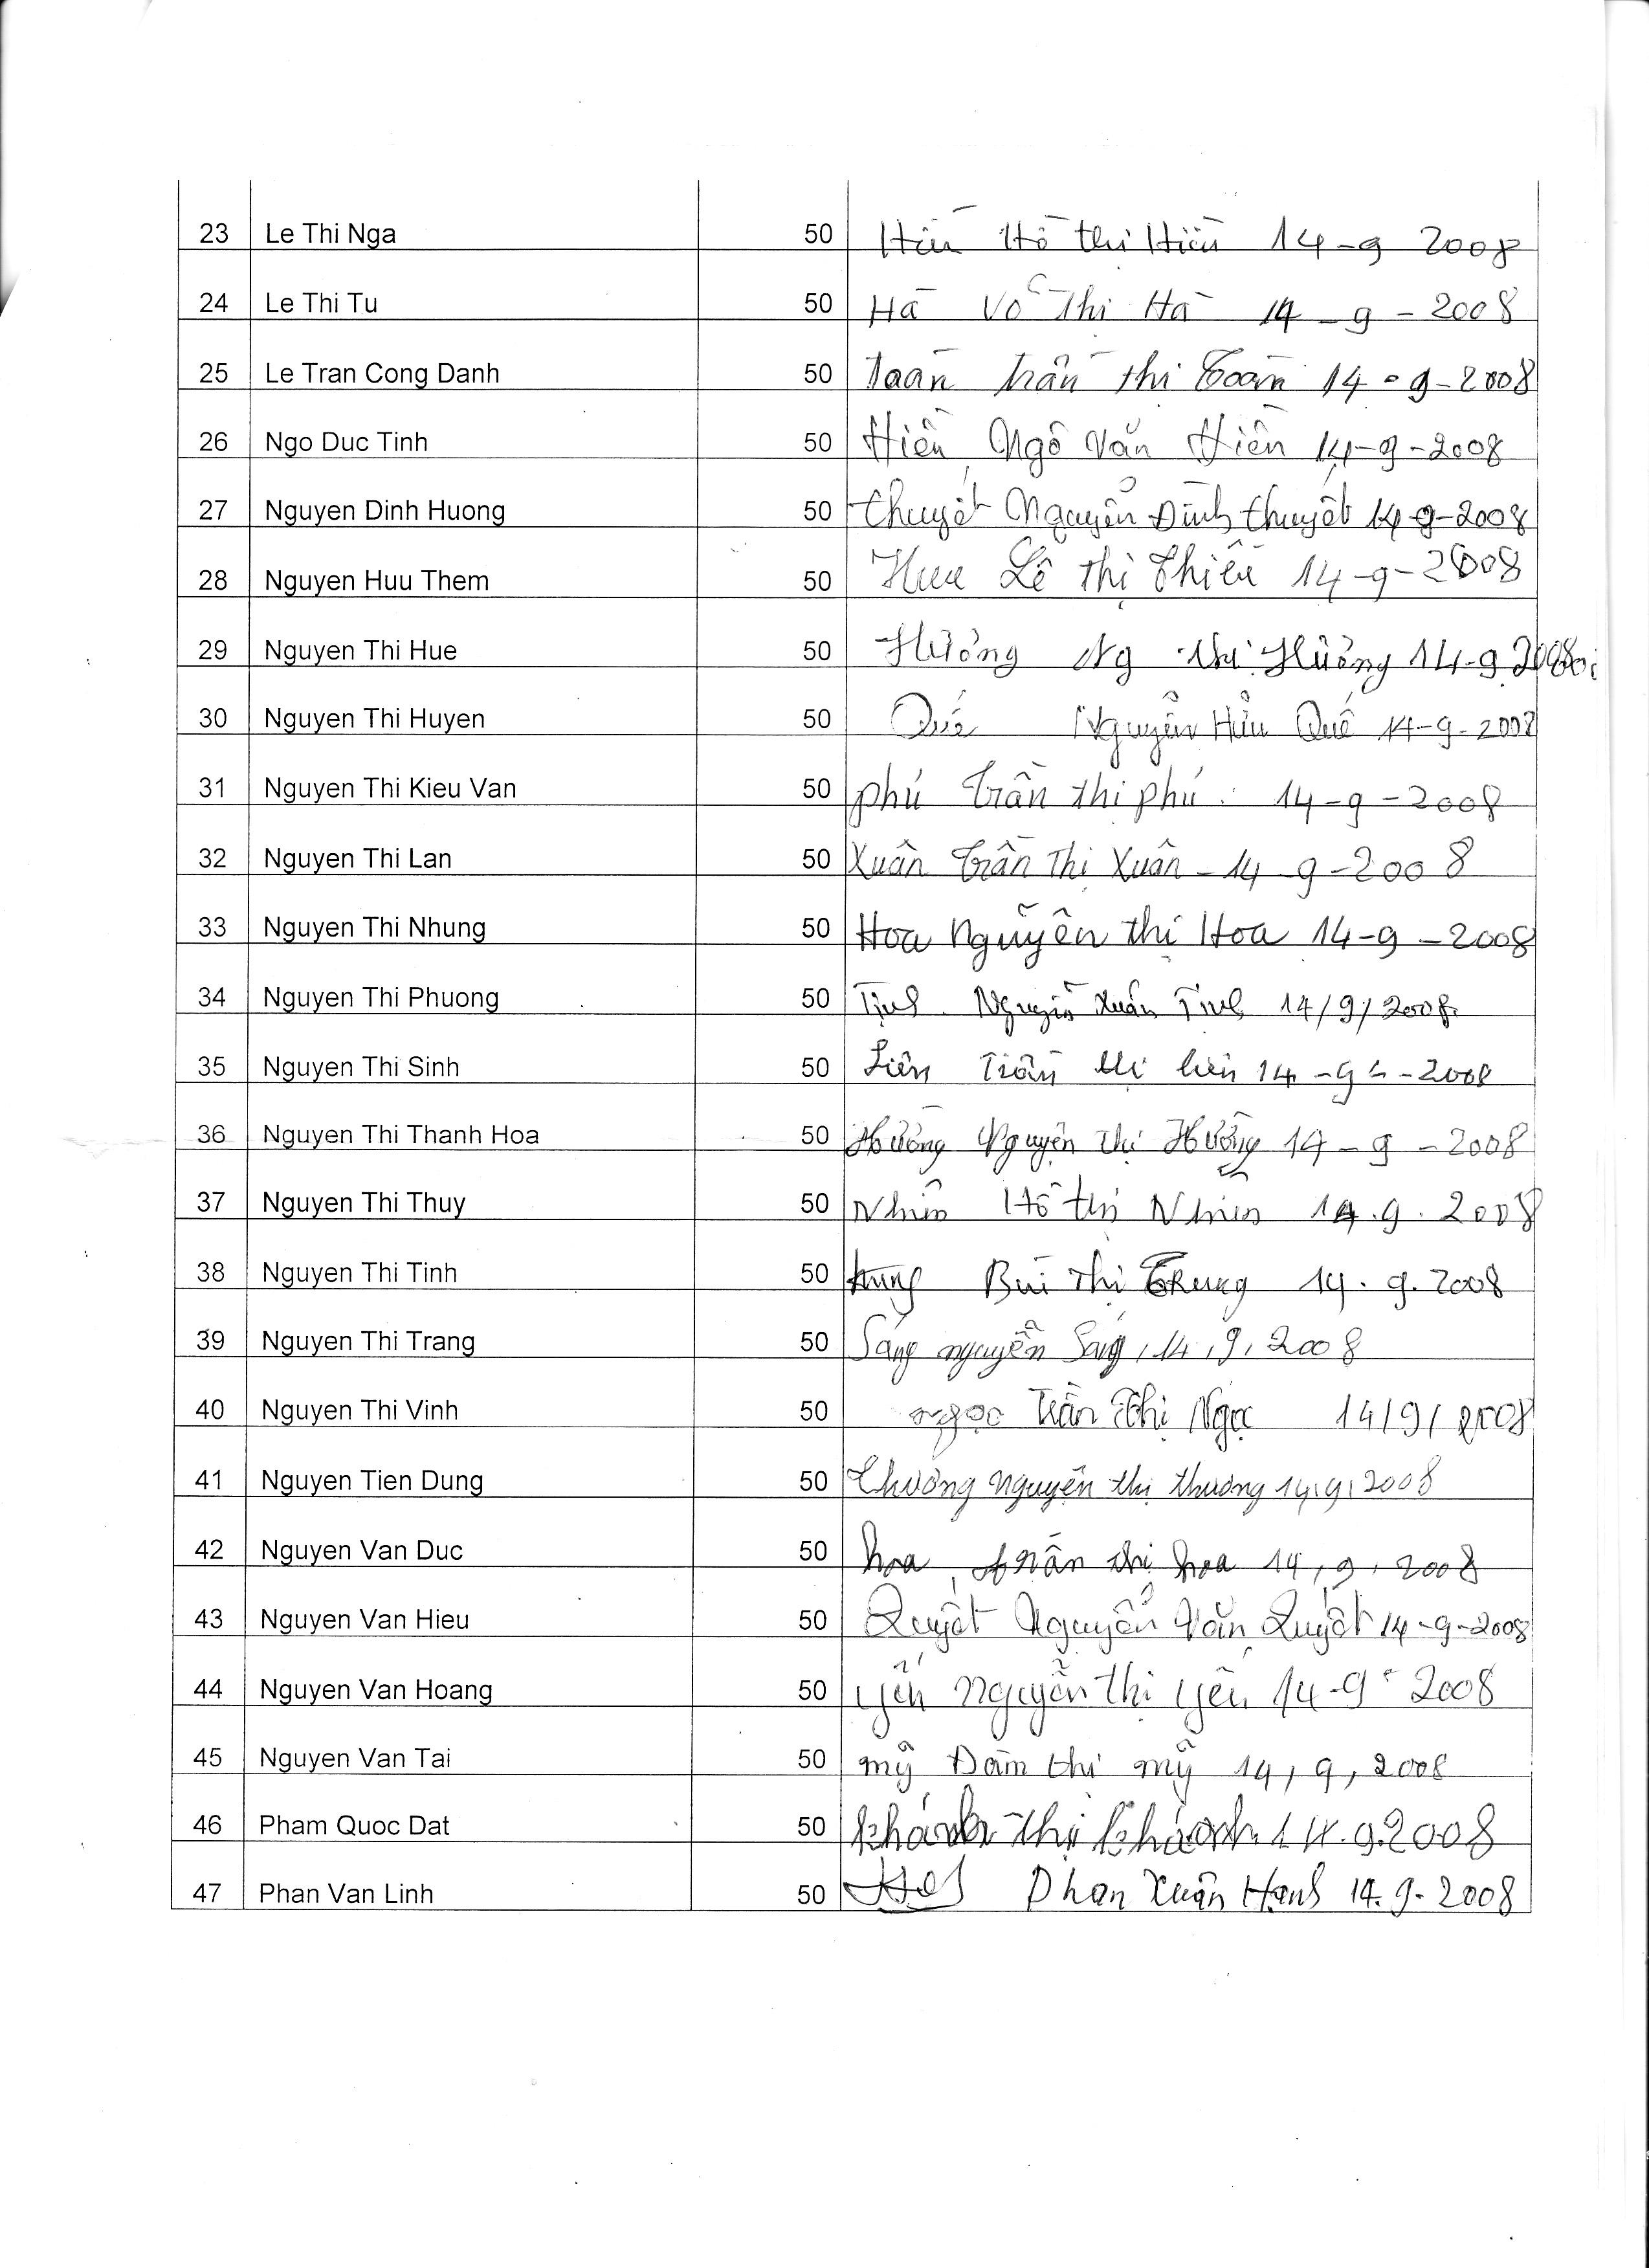 23 Le Thi Nga 50 Hiền Hồ thị Hiền 14-9 2008
24 Le Thi Tu 50 Hà Võ Thị Hà 14-9-2008
25 Le Tran Cong Danh 50 Toàn trần thị Toàn 14-9-2008
26 Ngo Duc Tinh 50 Hiền Ngô Văn Hiền 14-9-2008
27 Nguyen Dinh Huong 50 thuyết Nguyễn Đình thuyết 14-9-2008
28 Nguyen Huu Them 50 Lê thị 14-9-2008
29 Nguyen Thi Hue 50 Hường Ng thị Hường 14-9 2008
30 Nguyen Thi Huyen 50 Quế Nguyễn Hữu Quế 14-9-2008
31 Nguyen Thi Kieu Van 50 phú Trần thị phú 14-9-2008
32 Nguyen Thi Lan 50 Xuân Trần Thị Xuân - 14-9-2008
33 Nguyen Thi Nhung 50 Hoa Nguyễn thị Hoa 14-9-2008
34 Nguyen Thi Phuong 50 Nguyễn Xuân 14/9/2008
35 Nguyen Thi Sinh 50 Liên Trần thị liên 14-9-2008
36 Nguyen Thi Thanh Hoa 50 Hường Nguyễn thị Hường 14-9-2008
37 Nguyen Thi Thuy 50 Nhiên Hồ thị Nhiên 14.9.2008
38 Nguyen Thi Tinh 50 Bùi Thị Trung 14.9.2008
39 Nguyen Thi Trang 50 Sáng nguyễn Sáng, 14, 9, 2008
40 Nguyen Thi Vinh 50 ngọc Trần Thị Ngọc 14/9/2008
41 Nguyen Tien Dung 50 Thương nguyễn thị thương 14, 9, 2008
42 Nguyen Van Duc 50 hoa trần thị hoa 14, 9, 2008
43 Nguyen Van Hieu 50 Quyết Nguyễn Văn Quyết 14-9-2008
44 Nguyen Van Hoang 50 yến nguyễn thị yến 14-9-2008
45 Nguyen Van Tai 50 mỹ Đàm thị mỹ 14, 9, 2008
46 Pham Quoc Dat 50 khánh Thị khánh 14.9.2008
47 Phan Van Linh 50 Phan Xuân Hạnh 14.9-2008